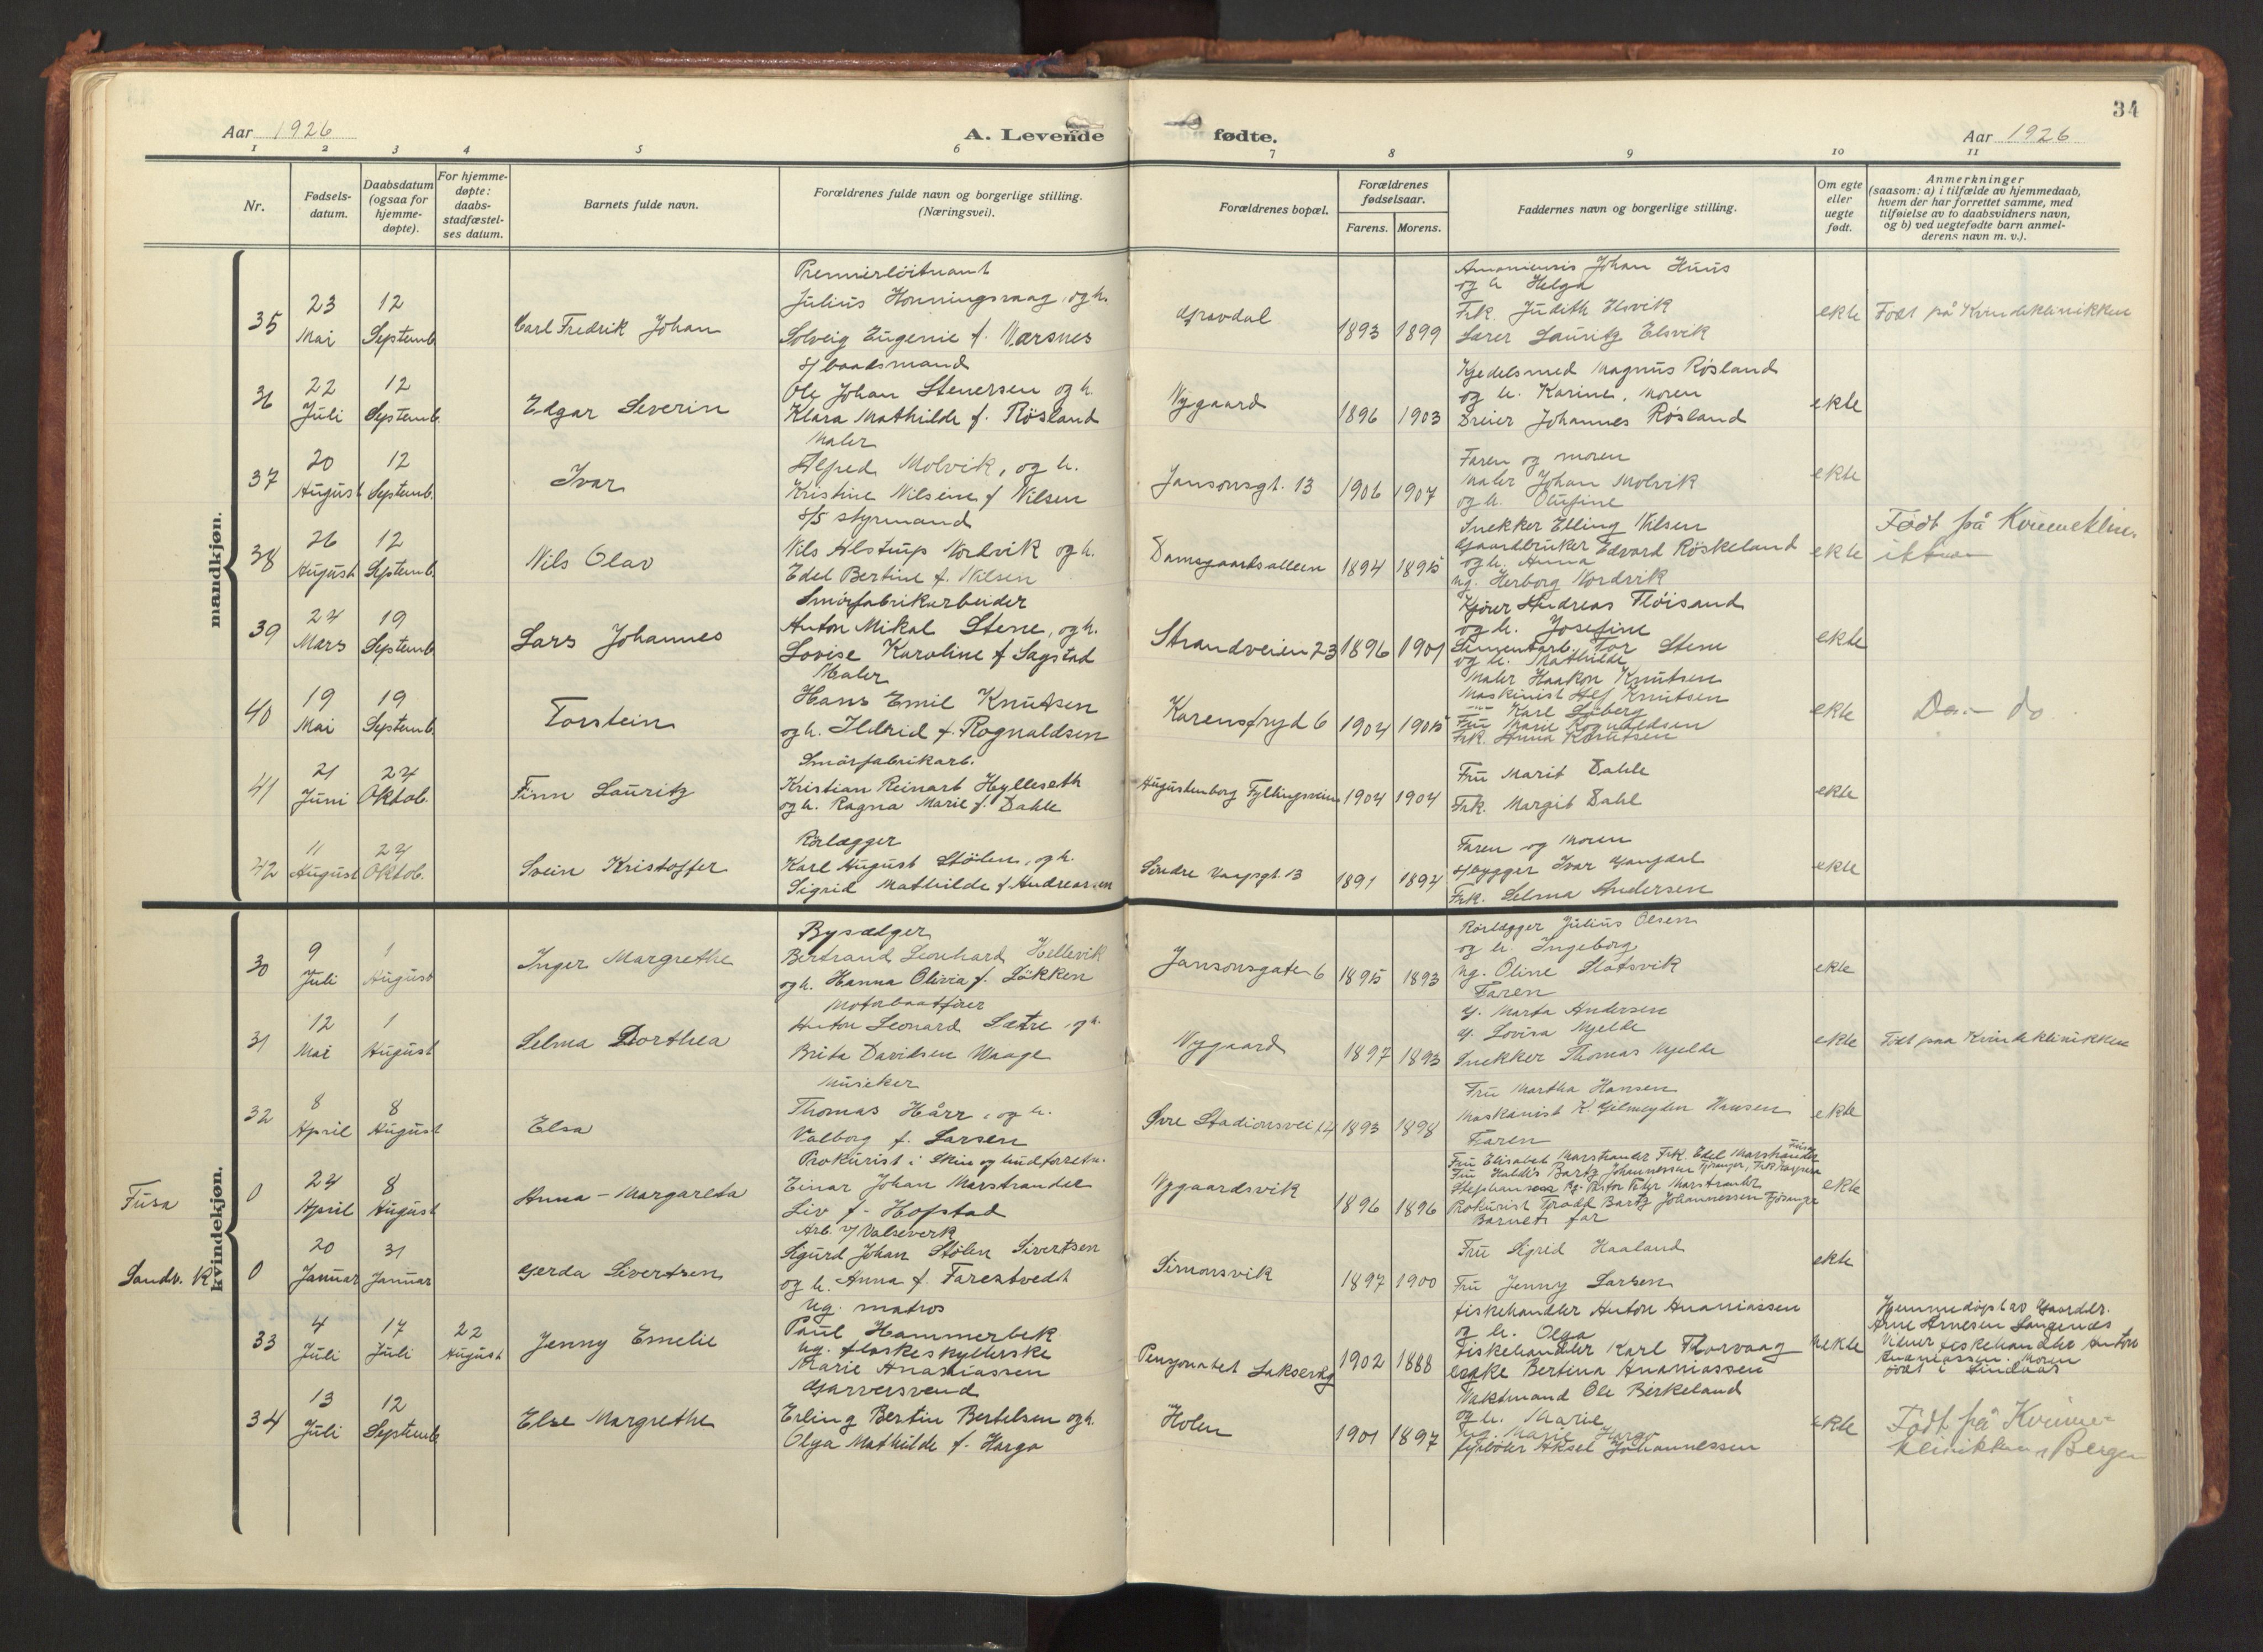 34
Aar 1926
A. Levende fødte.
Aar 1926
1 2 3 4 5 6 7 8 9 10 11
Nr.
Fødsels-
datum.
Daabsdatum
(ogsaa for
hjemme-
døpte).
For hjemme-
døpte:
daabs-
stadfæstel-
ses datum.
Barnets fulde navn.
Forældrenes fulde navn og borgerlige stilling.
(Næringsvei).
Forældrenes bopæl.
Forældrenes
fødselsaar.
Farens. Morens.
Faddernes navn og borgerlige stilling.
Om egte
eller
uegte
født.
Anmerkninger
(saasom: a) i tilfælde av hjemmedaab,
hvem der har forrettet samme, med
tilføielse av to daabsvidners navn,
og b) ved uegtefødte barn anmel-
derens navn m. v.).
mandkjøn.
35
23
Mai
12
Septemb.
Carl Fredrik Johan
Premierløitnant
Julius Honningsvaag, og h.
Solveig Eugenie f. Værsnes
Gravdal
1893 1899
Johan Huus
og h Helga
Frk. Judith Elsvik
Lærer Lauritz Elsvik
ekte
Født på Kvindeklinikken
36
22
Juli
12
Septemb.
Edgar Severin
s/baadsmand
Ole Johan Stenersen og h.
Klara Mathilde f. Røsland
Nygaard
1896 1903
Kjedelsmed Magnus Røsland
og h. Karine, Moren
Dreier Johannes Røsland
ekte
37
20
August
12
Septemb.
Ivar
Maler
Alfred Molvik, og h.
Kristine Nilsine f Nilsen
Jansonsgt. 13
1906 1907
Faren og moren
Maler Johan Molvik
og h. Olufine
ekte
38
26
August
12
Septemb.
Nils Olav
s/s styrmand
Nils Alstrup Nordvik og h.
Edel Bertine f. Nilsen
Damsgaardsalleen
1894 1895
Snekker Elling Nilsen
Gaardbruker Edvard Röskeland
og h. Anna
ug. Herborg Nordvik
ekte
Født på Kvinneklin.
ikken
39
24
Mars
19
Septemb.
Lars Johannes
Smörfabrikarbeider
Anton Mikal Stene, og h.
Lovise Karoline f Sagstad
Strandveien 23
1896 1901
Kjörer Andreas Flöisand
og h. Josefine
Sementarb. Tor Stene
og h. Mathilde
ekte
40
19
Mai
19
Septemb.
Torstein
Maler
Hans Emil Knutsen
og h. Ildrid f. Rognaldsen
Karensfryd 6
1904 1905
Maler Haakon Knutsen
Maskinist Alf Knutsen
Karl Söberg
Fru Marie Rognaldsen
Frk. Anna Knutsen
ekte
Do - do
41
21
Juni
24
Oktob.
Finn Lauritz
Smörfabrikarb.
Kristian Reinart Hylleseth
og h. Ragna Marie f. Dahle
Augustenborg Fyllingsveien
1904 1904
Fru Marit Dahle
Frk. Margit Dahl
ekte
42
11
August
24
Oktob.
Svein Kristoffer
Rörlægger
Karl August Stölen, og h.
Sigrid Mathilde f Andreassen
Söndre 13
1891 1894
Faren og Moren
Ivar
Frk. Selma Andersen
ekte
kvindekjøn.
30
9
Juli
1
August
Inger Margrethe
Bysælger
Bertrand Leonhard Hellevik
og h. Hanna Olivia f. Lökken
Jansonsgaten 6
1895 1893
Rörlægger Julius Olsen
og h. Ingeborg
ug. Oline Slotsvik
Faren
ekte
31
12
Mai
1
August
Selma Dorthea
Motorbaatfører
Anton Leonard Sætre og h.
Brita Davidsen Waage
Nygaard
1897 1893
g. Marta Andersen
g. Lovisa Mjelde
Snekker Thomas Mjelde
ekte
Født paa Kvindeklinikken
32
8
April
8
August
Elsa
Musiker
Thomas Hårr, og h.
Valborg f. Larsen
Øvre Stadionsvei 14
1893 1898
Fru Martha Hansen
Maskinist K. Hansen
Faren
ekte
Fusa
0
24
April
8
August
Anna-Margareta
Prokurist i Skin og hudforretn.
Einar Johan Marstrander
Liv f. Hofstad
Nygaardsvik
1896 1896
Fru Elisabet Marstrander Frk. Edel Marstrander
Fru Haldis Bartz Johannessen Fjösanger, Frk.
Stephansen Pastor Marstrander
Prokurist Bartz Johannessen Fjösanger
Barnets far
ekte
Sandv. K
0
20
Januar
31
Januar
Gerda Sivertsen
Arb. v/ Valseverk
Sigurd Johan Stølen Sivertsen
og h. Anna f. Farestvedt
Simonsvik
1897 1900
Fru Sigrid Haaland
Fru Jenny Larsen
ekte
33
4
Juli
17
Juli
22
August
Jenny Emelie
Ug. matros
Paul Hammerbek
ug. flaskeskyllerske
Marie Ananiassen
Pensjonatet Laksevåg
1902 1888
Fiskehandler Anton Ananiassen
og h. Olga
Fiskehandler Karl Thorvaag
enke Bertina Ananiassen
uekte
Hjemmedöpt av Gaardbr.
Arne Arnesen Langenes
Vitner fiskehandler Anton
Ananiassen. Moren
født i Lindaas
34
13
Juli
12
Septemb
Else Margrethe
Garversvend
Erling Bertin Bertelsen og h.
Olga Mathilde f. Hargo
Holen
1901 1897
Vaktmand Ole Birkeland
og h. Marie
ug. Marie Hargo
fyrböter Aksel Johannessen
ekte
Født på Kvinne-
klinikken i Bergen